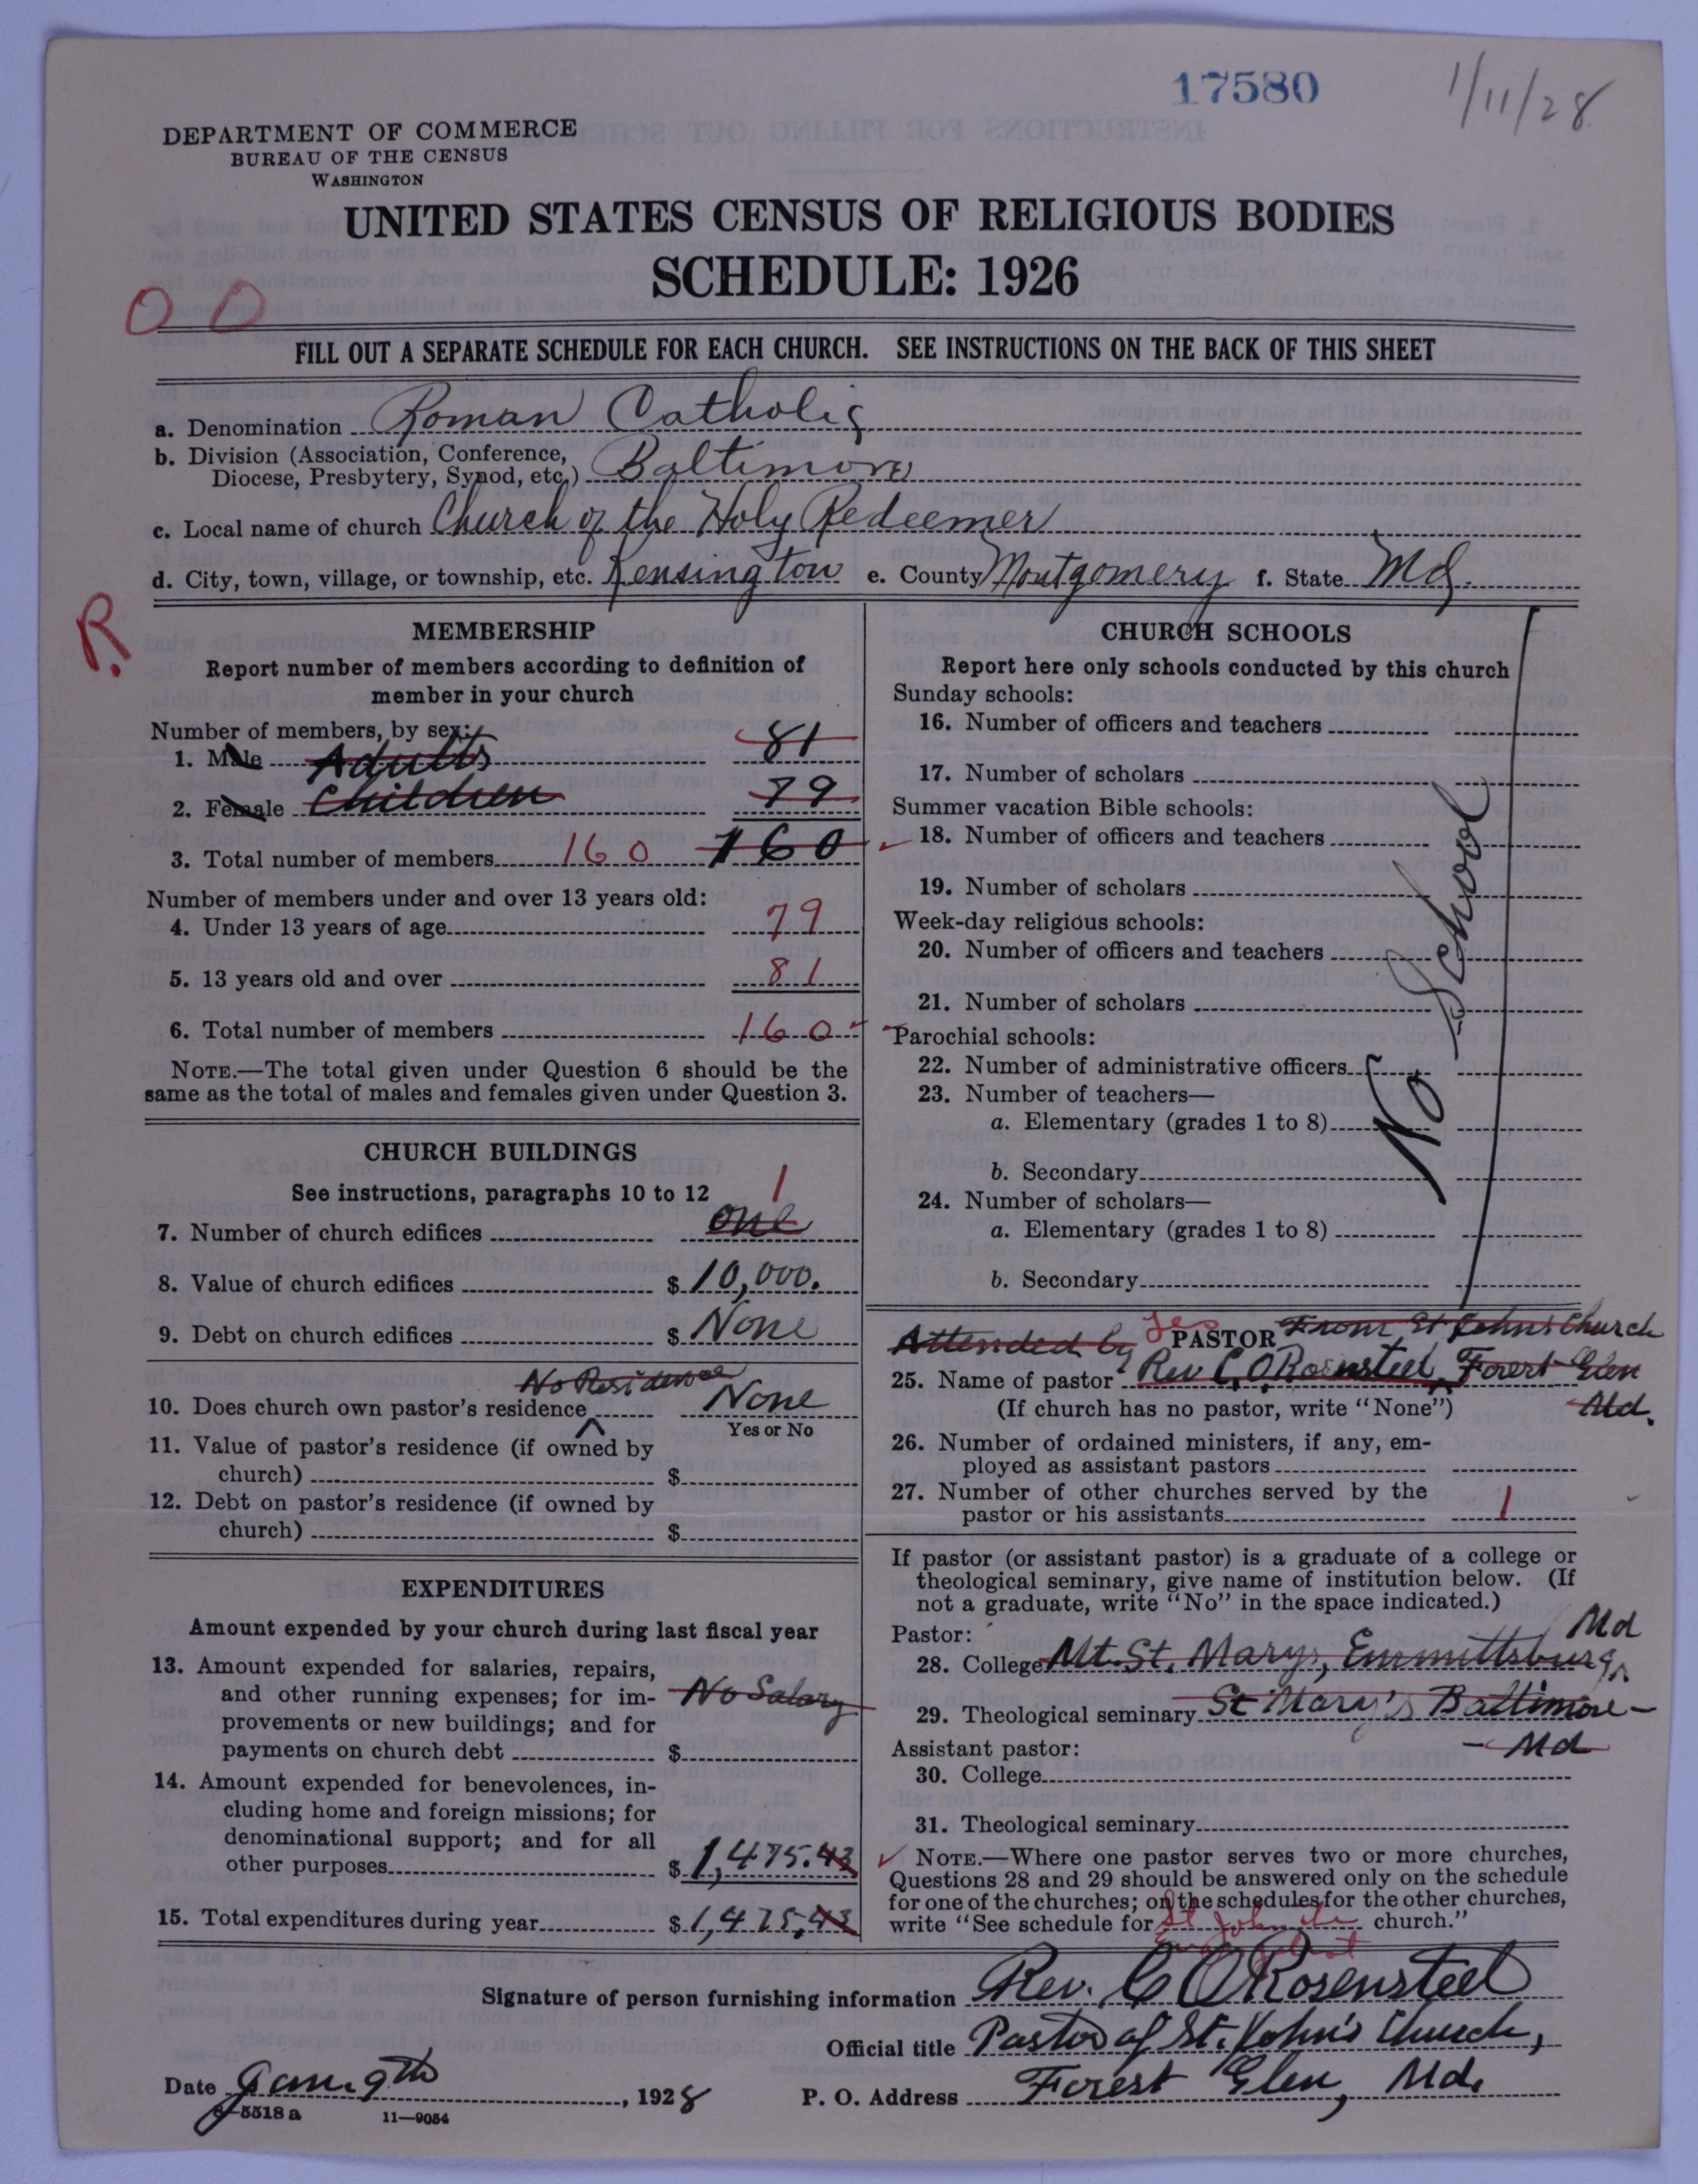 17580
1/11/28
DEPARTMENT OF COMMERCE
BUREAU OF THE CENSUS
WASHINGTON
UNITED STATES CENSUS OF RELIGIOUS BODIES
SCHEDULE: 1926
0 0
FILL OUT A SEPARATE SCHEDULE FOR EACH CHURCH. SEE INSTRUCTIONS ON THE BACK OF THIS SHEET
a. Denomination Roman Catholic
b. Division (Association, Conference,
Diocese, Presbytery, Synod, etc.) Baltimore
c. Local name of church Church of the Holy Redeemer
d. City, town, village, or township, etc. Kensington e. County Montgomery f. State Md.
R.
MEMBERSHIP
Report number of members according to definition of
member in your church
Number of members, by sex:
1. Male Adults 81
2. Female Children 79
3. Total number of members 160 160
Number of members under and over 13 years old:
4. Under 13 years of age 79
5. 13 years old and over 81
6. Total number of members 160
NOTE.—The total given under Question 6 should be the
same as the total of males and females given under Question 3.
CHURCH BUILDINGS
See instructions, paragraphs 10 to 12 1
7. Number of church edifices one
8. Value of church edifices $ 10,000.
9. Debt on church edifices $ None
No Residence
10. Does church own pastor's residence None
Yes or No
11. Value of pastor's residence (if owned by
church) $
12. Debt on pastor's residence (if owned by
church) $
EXPENDITURES
Amount expended by your church during last fiscal year
13. Amount expended for salaries, repairs,
and other running expenses; for im- No Salary
provements or new buildings; and for
payments on church debt $
14. Amount expended for benevolences, in-
cluding home and foreign missions; for
denominational support; and for all
other purposes $ 1,475.43
15. Total expenditures during year $ 1,475.43
CHURCH SCHOOLS
Report here only schools conducted by this church
Sunday schools:
16. Number of officers and teachers
17. Number of scholars
Summer vacation Bible schools:
18. Number of officers and teachers
19. Number of scholars
Week-day religious schools:
20. Number of officers and teachers
21. Number of scholars
Parochial schools:
22. Number of administrative officers
23. Number of teachers—
a. Elementary (grades 1 to 8)
b. Secondary
24. Number of scholars—
a. Elementary (grades 1 to 8)
b. Secondary
No School
Attended by Yes PASTOR From St John's Church
25. Name of pastor Rev C. O. Rosensteel, Forest Glen
(If church has no pastor, write "None") Md.
26. Number of ordained ministers, if any, em-
ployed as assistant pastors
27. Number of other churches served by the
pastor or his assistants 1
If pastor (or assistant pastor) is a graduate of a college or
theological seminary, give name of institution below. (If
not a graduate, write "No" in the space indicated.)
Pastor: Md
28. College Mt. St. Mary's, Emmittsburg,
29. Theological seminary St Mary's Baltimore -
Assistant pastor: - Md
30. College
31. Theological seminary
NOTE.—Where one pastor serves two or more churches,
Questions 28 and 29 should be answered only on the schedule
for one of the churches; on the schedules for the other churches,
write "See schedule for St John the church."
Signature of person furnishing information Rev. C O Rosensteel
Official title Pastor of St. John's Church,
Date Jan. 9th, 1928 P. O. Address Forest Glen, Md.
8—5518 a 11—9054